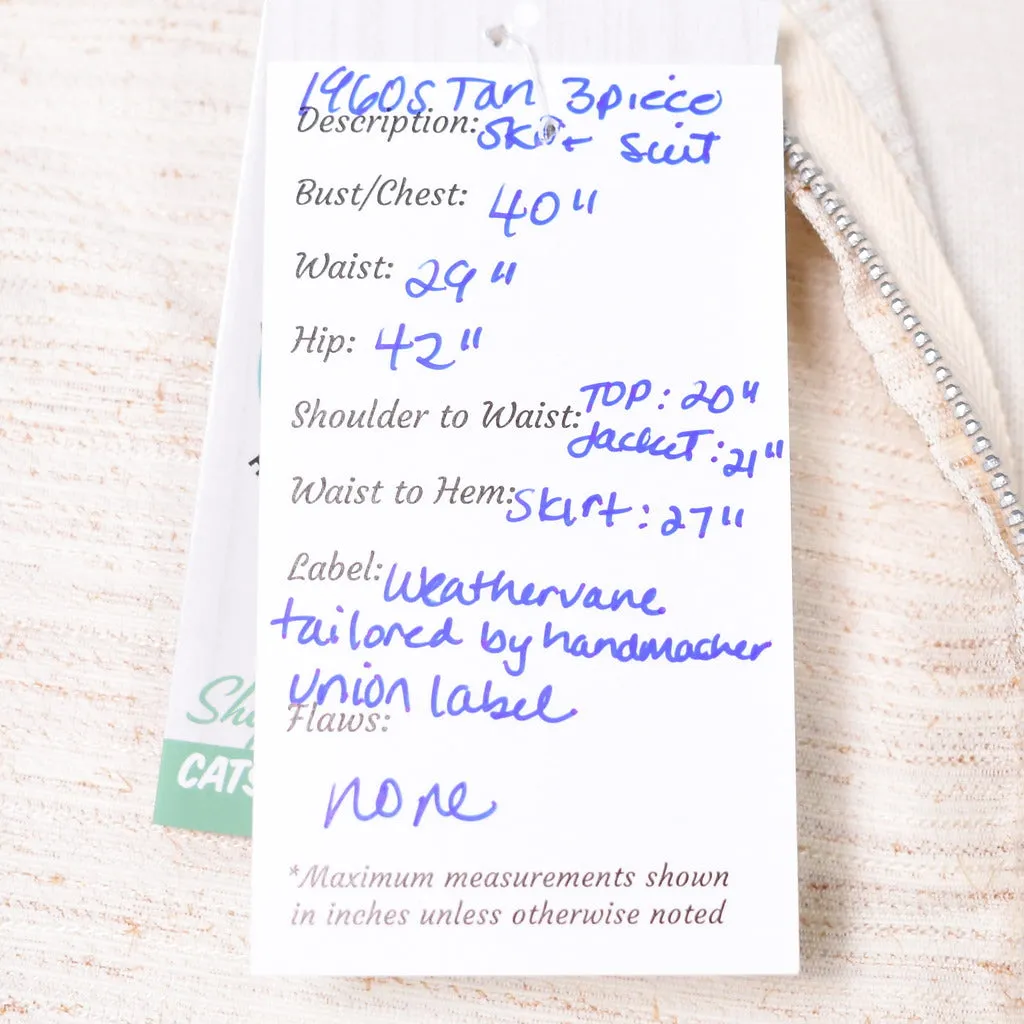 1960s Tan 3piece
Description: Skirt Suit
Bust/Chest: 40"
Waist: 29"
Hip: 42"
Shoulder to Waist: TOP: 20"
Jacket: 21"
Waist to Hem: Skirt: 27"
Label: Weathervane
tailored by handmacher
union label
Flaws:
none
*Maximum measurements shown
in inches unless otherwise noted
CATS